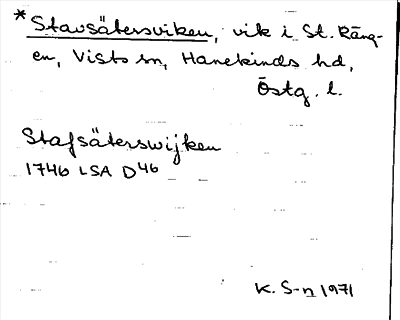 *Stavsätersviken, vik i St. Räng-
en, Visto sn, Hanekinds hd,
Östg. l.
Stafsäterswijken
1746 LSA D46
K. S-n 1971